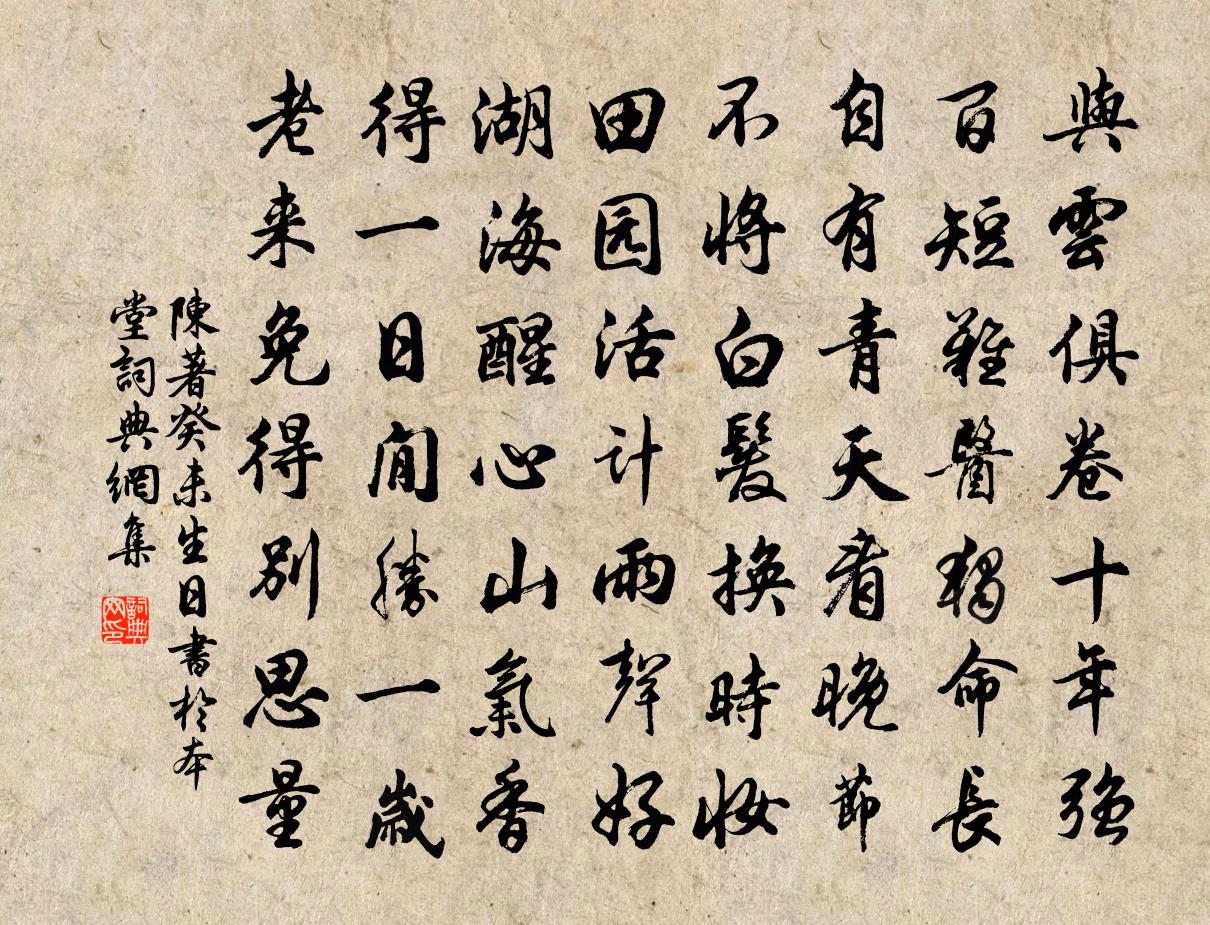 與雲俱卷十年强
百短難醫獨命長
自有青天看晚節
不將白髮換時妝
田园活计雨聲好
湖海醒心山氣香
得一日閒勝一歲
老来免得别思量
陳著癸未生日書於本
堂詞典網集
詞典
网印